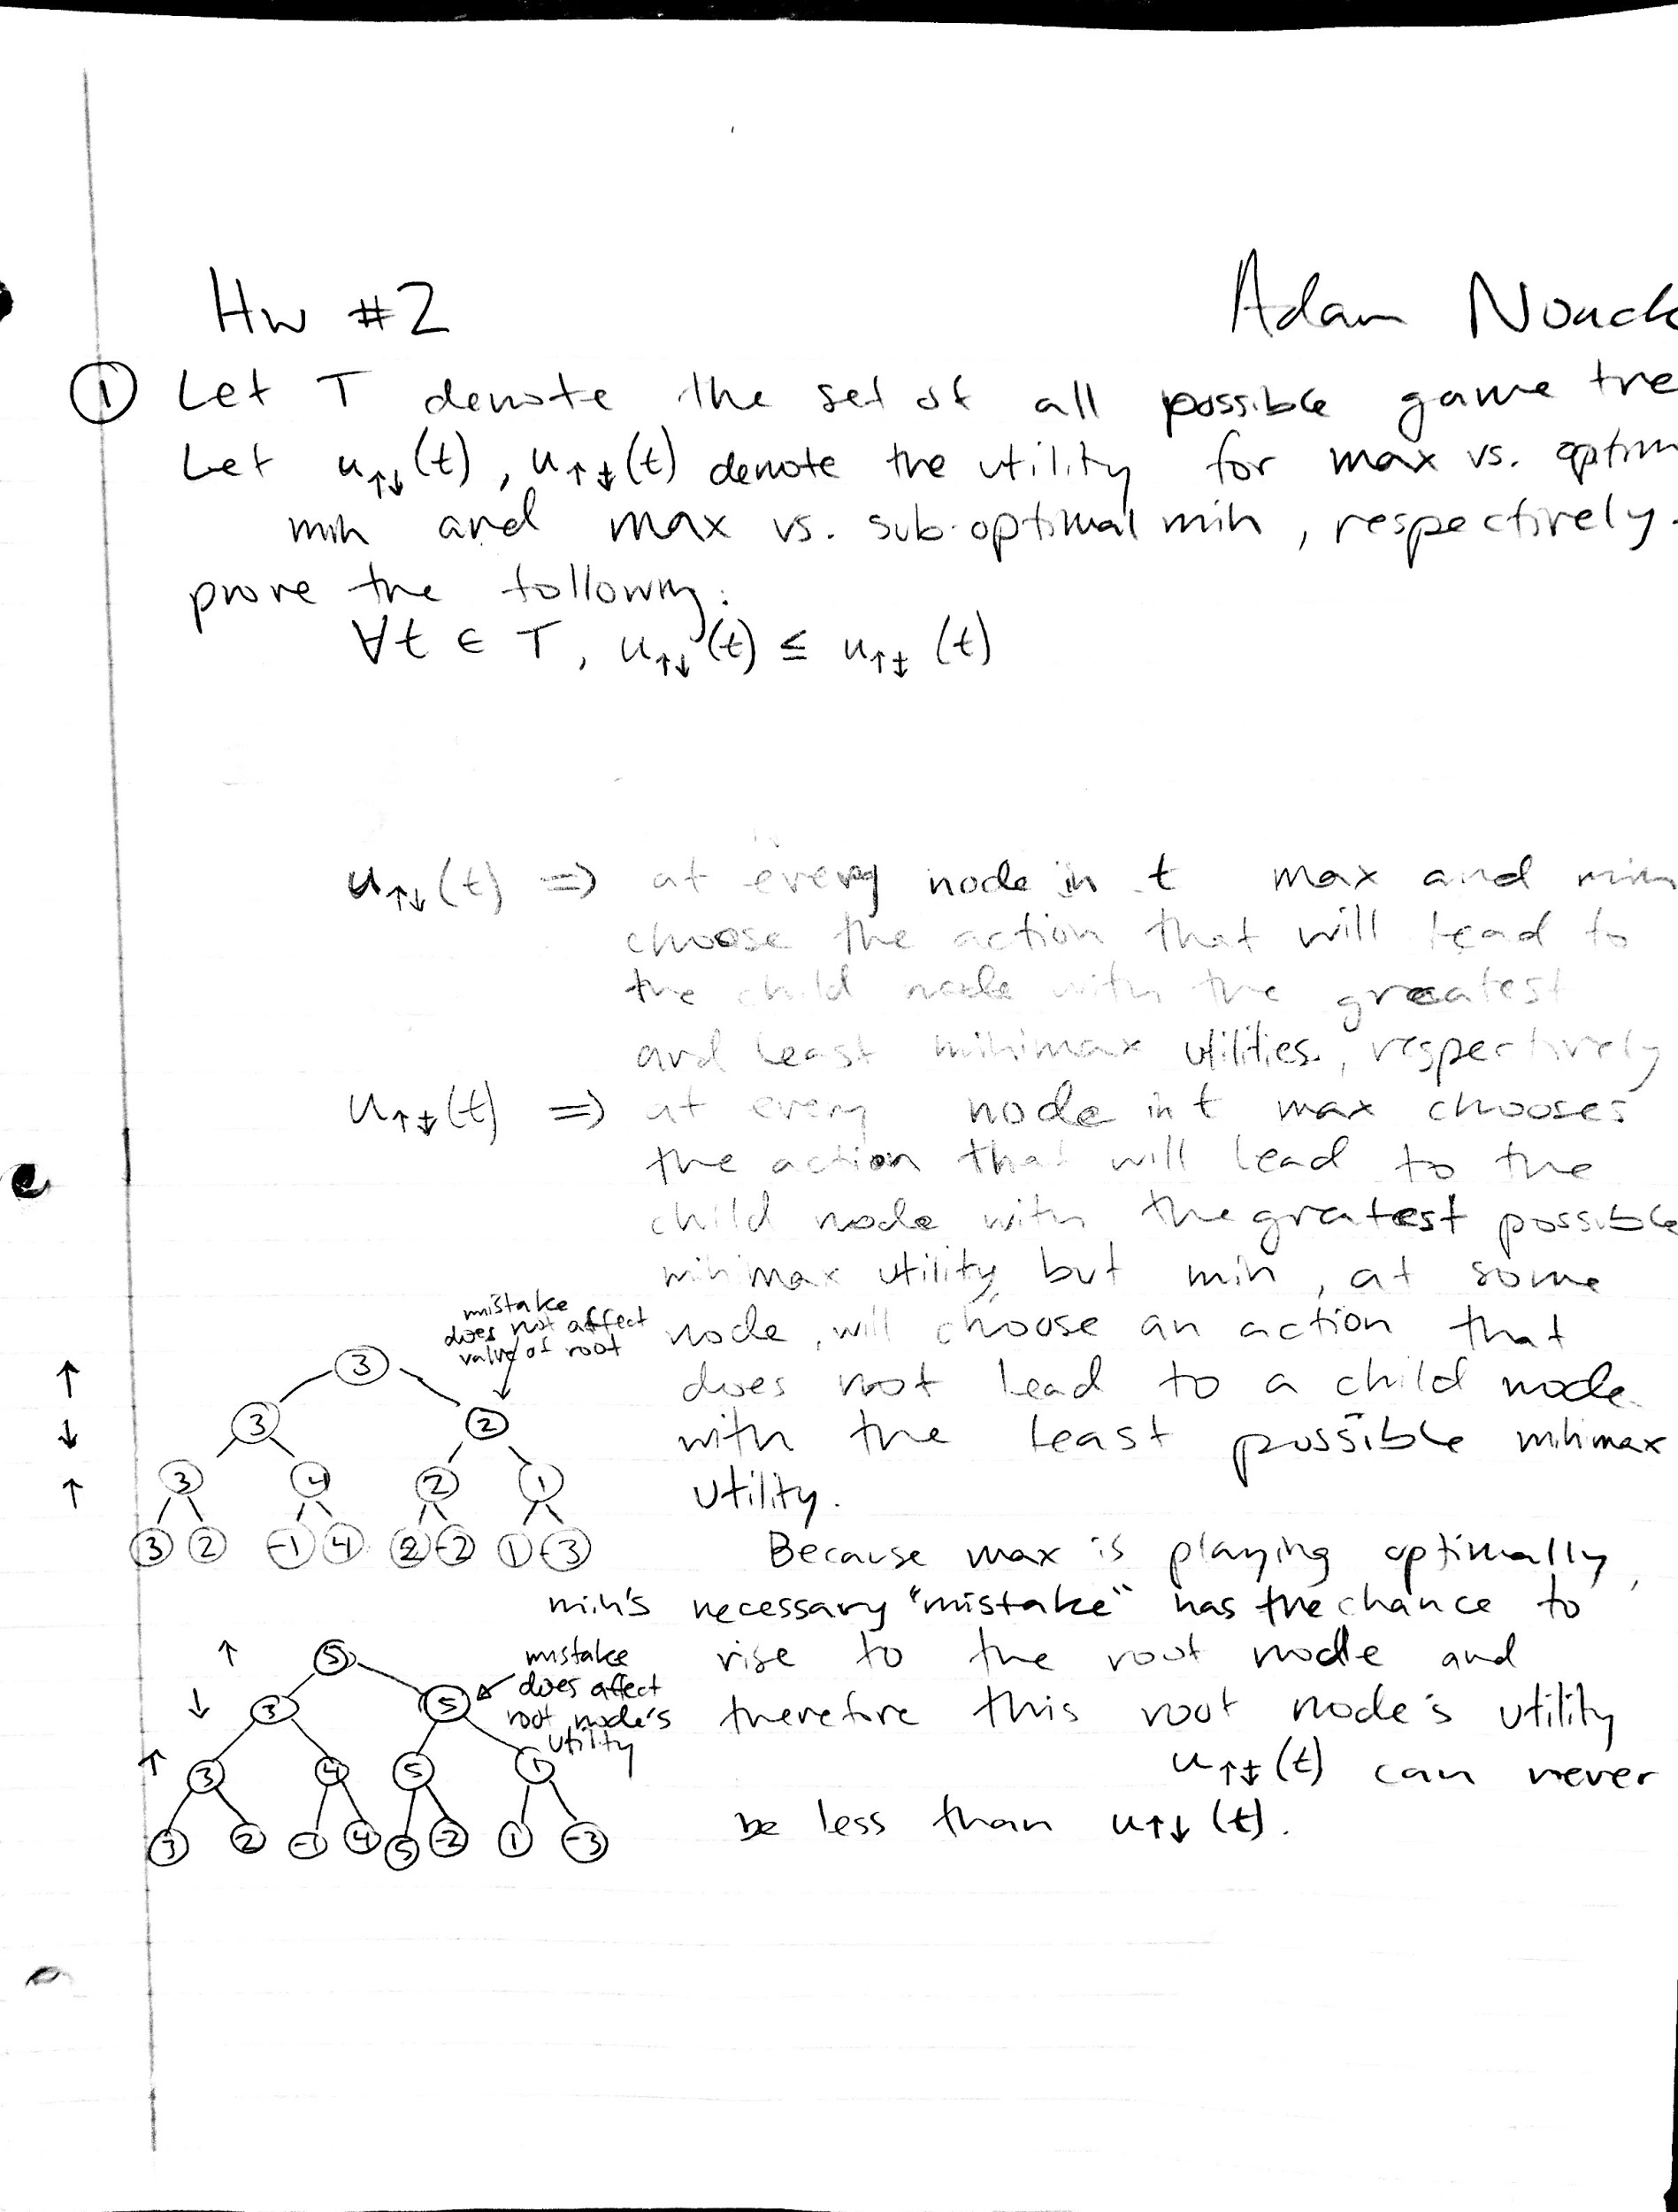 Hw #2 Adam Nouack
① Let T denote the set of all possible game tre
Let u↑↓(t), u↑⤈(t) denote the utility for max vs. optim
min and max vs. sub-optimal min, respectively.
prove the following:
∀t ∈ T, u↑↓(t) ≤ u↑⤈(t)
u↑↓(t) ⇒ at every node in t max and min
choose the action that will lead to
the child node with the greatest
and least minimax utilities, respectively
u↑⤈(t) ⇒ at every node in t max chooses
the action that will lead to the
child node with the greatest possible
minimax utility, but min, at some
node, will choose an action that
does not lead to a child node
with the least possible minimax
utility.
mistake
does not affect
value of root
↑ 3
↓ 3 2
↑ 3 4 2 1
3 2 -1 4 2 -2 1 -3
Because max is playing optimally,
min's necessary "mistake" has the chance to
rise to the root node and
therefore this root node's utility
u↑⤈(t) can never
be less than u↑↓(t).
mistake
does affect
root node's
utility
↑ 5
↓ 3 5
↑ 3 4 5 1
3 2 -1 4 5 -2 1 -3